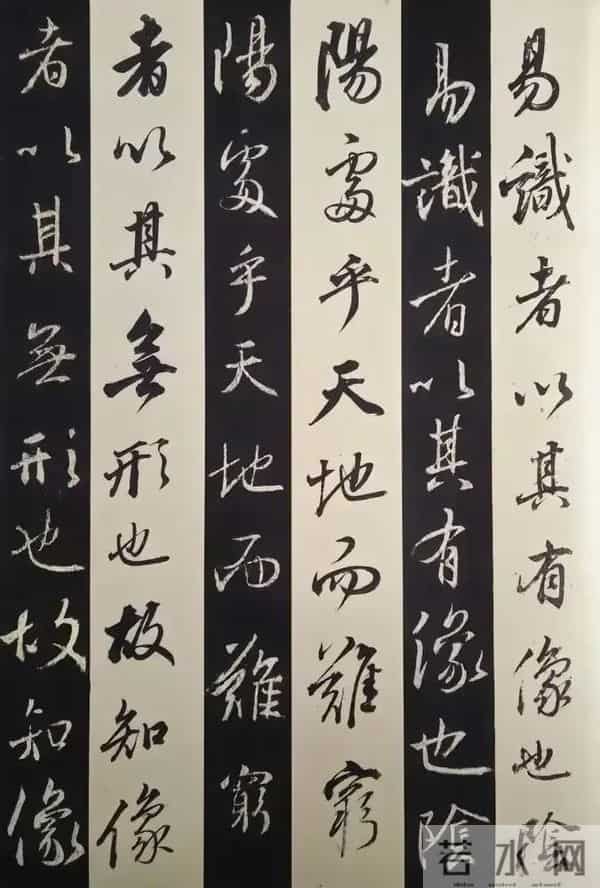 易識者以其有像也陰
易識者以其有像也陰
陽處乎天地而難窮
陽處乎天地而難窮
者以其無形也故知像
者以其無形也故知像
若水网